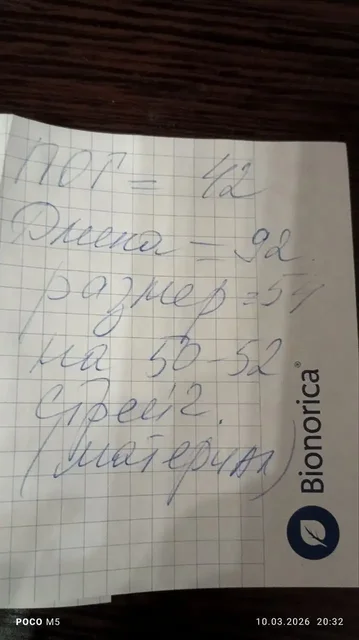 ПОГ = 42
Длина = 92.
размер = 54
на 50-52
стрейч.
(материал)
Bionorica®
POCO M5
10.03.2026 20:32